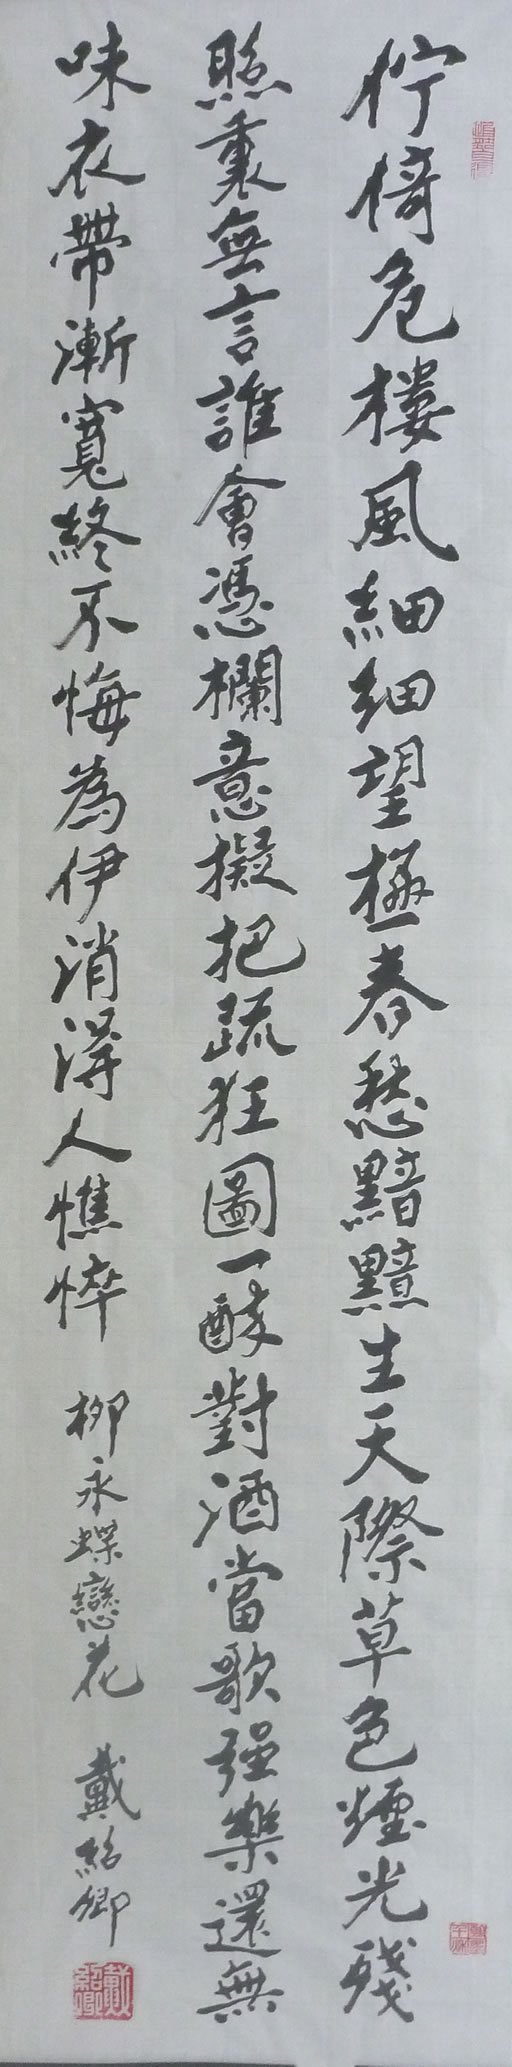 佇倚危樓風細細望極春愁黯黯生天際草色煙光殘
照裏無言誰會憑欄意擬把疏狂圖一醉對酒當歌強樂還無
味衣帶漸寬終不悔為伊消得人憔悴
柳永蝶戀花
戴紹卿
戴紹卿